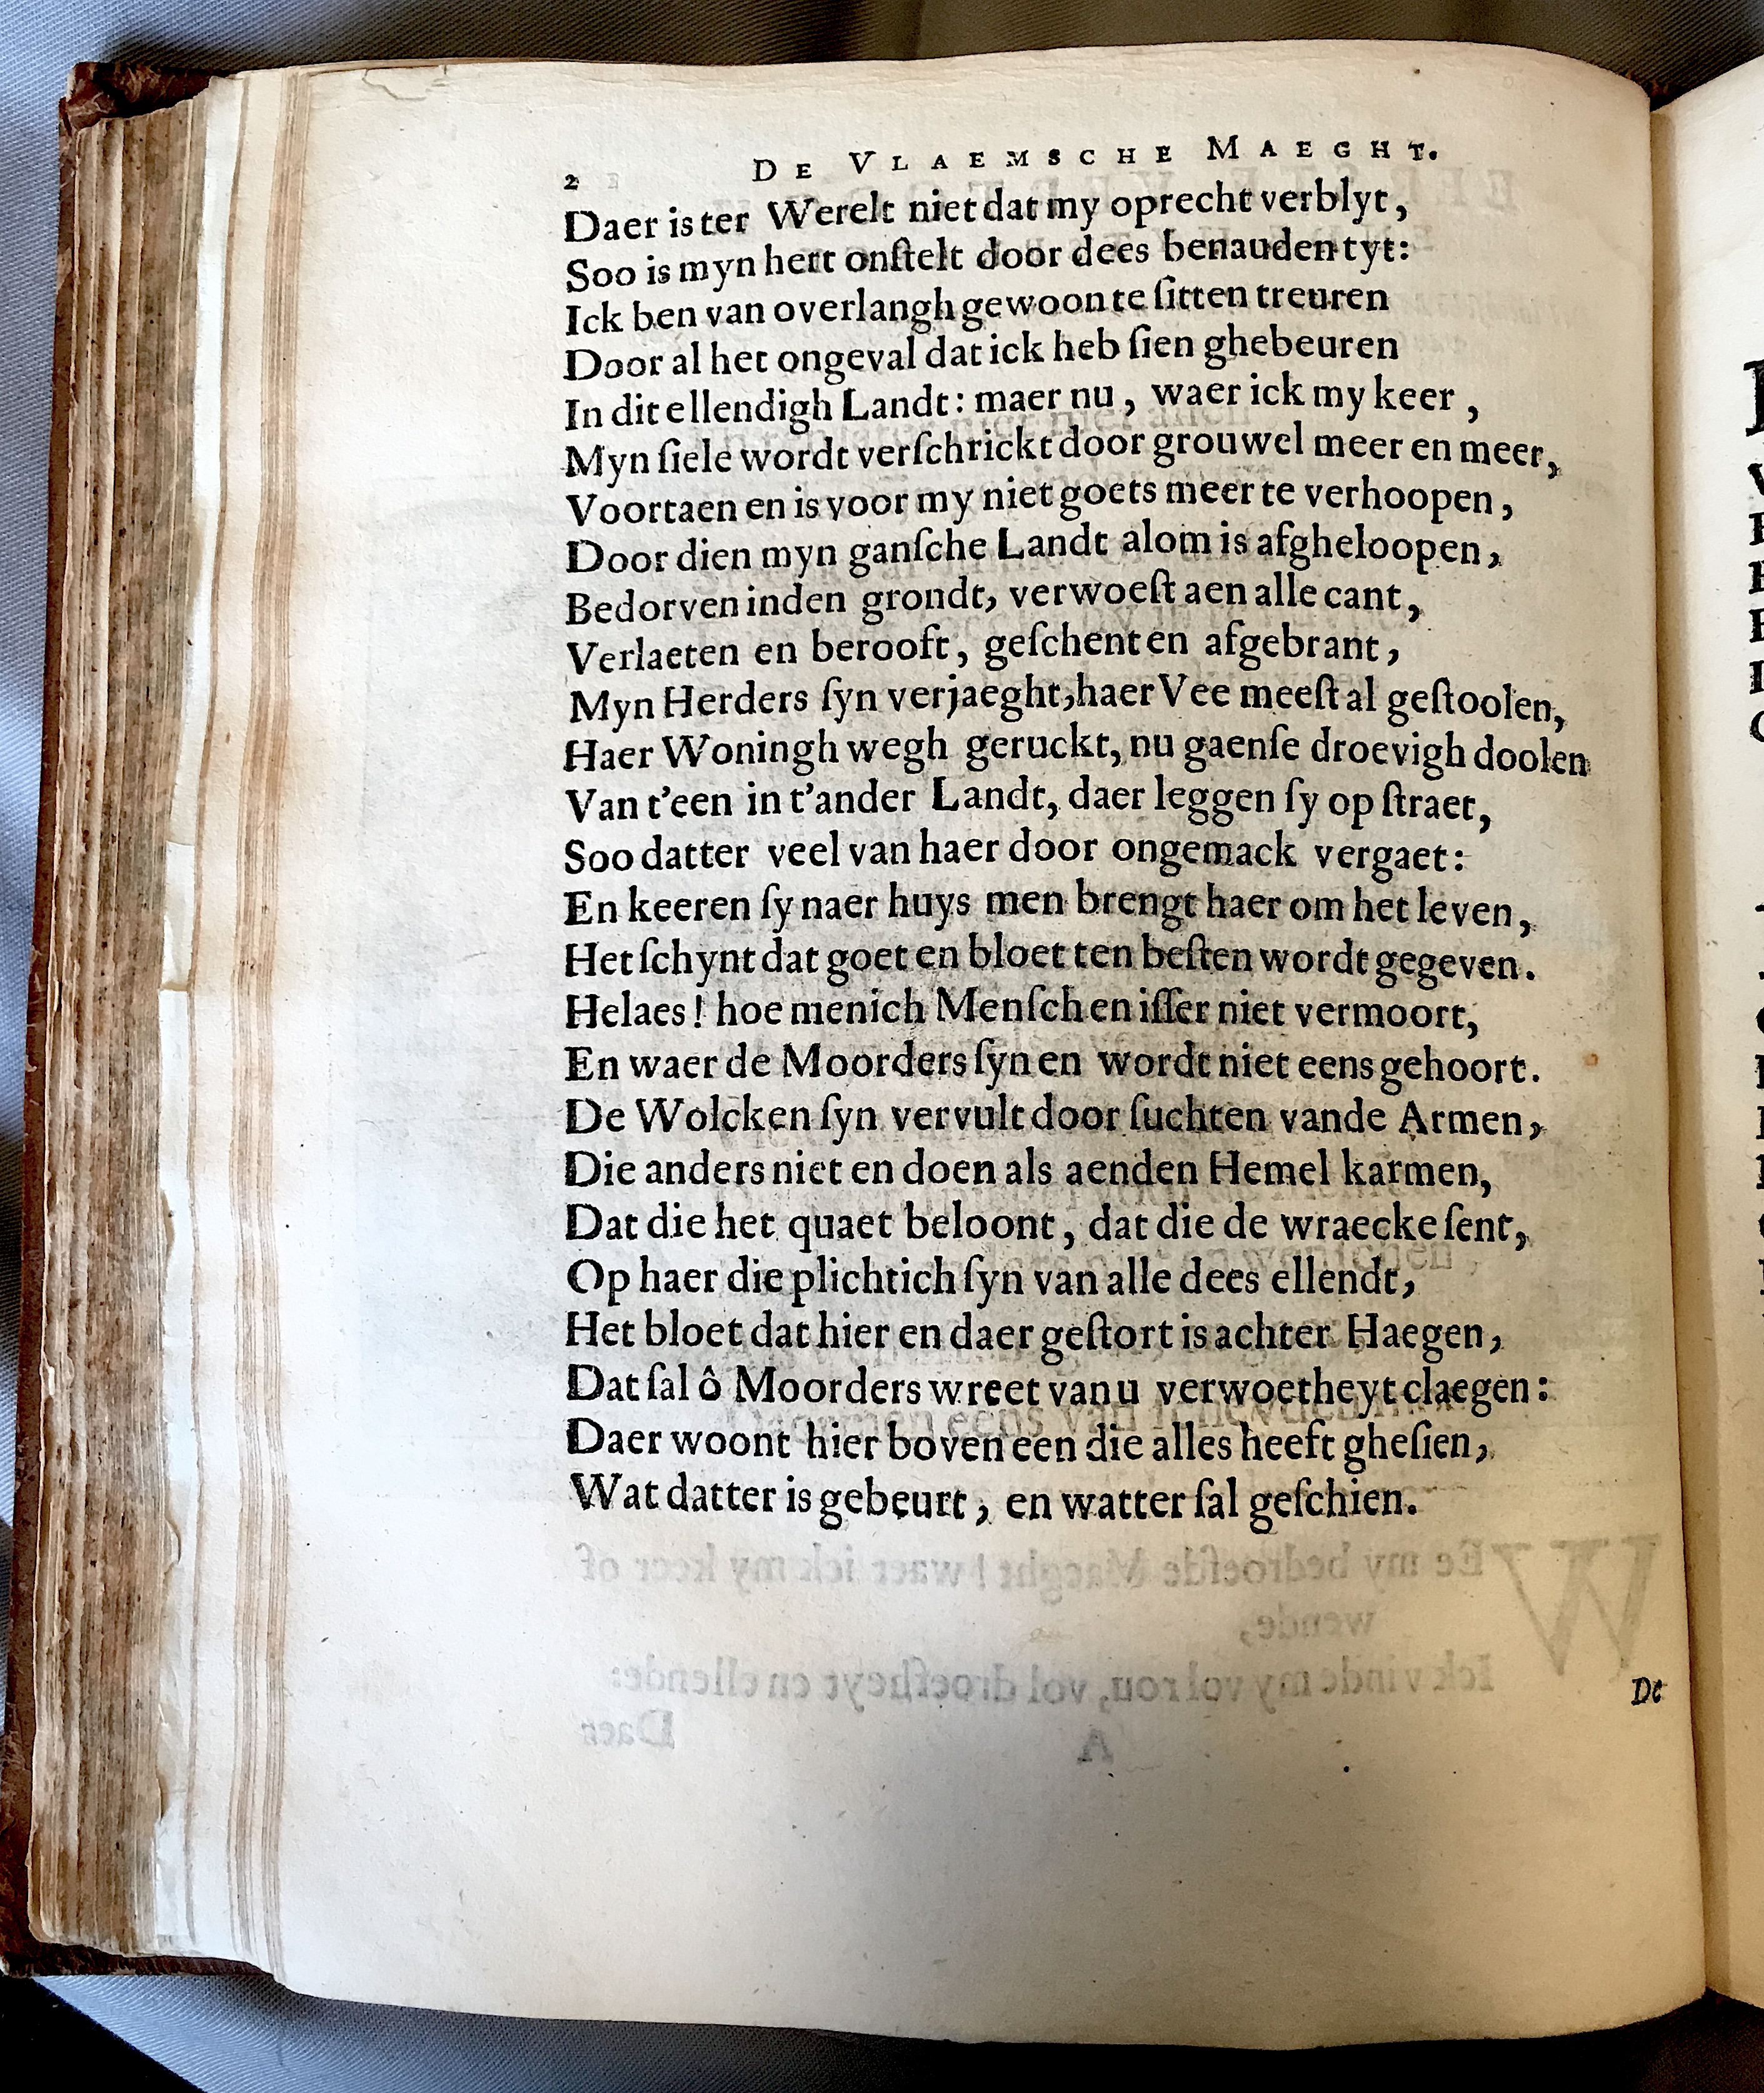 2 DE VLAEMSCHE MAEGHT.
Daer is ter Werelt niet dat my oprecht verblyt,
Soo is myn hert onſtelt door dees benauden tyt:
Ick ben van overlangh gewoon te ſitten treuren
Door al het ongeval dat ick heb ſien ghebeuren
In dit ellendigh Landt: maer nu, waer ick my keer,
Myn ſiele wordt verſchrickt door grouwel meer en meer,
Voortaen en is voor my niet goets meer te verhoopen,
Door dien myn ganſche Landt alom is afgheloopen,
Bedorven inden grondt, verwoeſt aen alle cant,
Verlaeten en berooft, geſchent en afgebrant,
Myn Herders ſyn verjaeght, haer Vee meeſt al geſtoolen,
Haer Woningh wegh geruckt, nu gaenſe droevigh doolen
Van t'een in t'ander Landt, daer leggen ſy op ſtraet,
Soo datter veel van haer door ongemack vergaet:
En keeren ſy naer huys men brengt haer om het leven,
Het ſchynt dat goet en bloet ten beſten wordt gegeven.
Helaes! hoe menich Menſchen iſſer niet vermoort,
En waer de Moorders ſyn en wordt niet eens gehoort.
De Wolcken ſyn vervult door ſuchten vande Armen,
Die anders niet en doen als aenden Hemel karmen,
Dat die het quaet beloont, dat die de wraecke ſent,
Op haer die plichtich ſyn van alle dees ellendt,
Het bloet dat hier en daer geſtort is achter Haegen,
Dat ſal ô Moorders wreet van u verwoetheyt claegen:
Daer woont hier boven een die alles heeft gheſien,
Wat datter is gebeurt, en watter ſal geſchien.
De